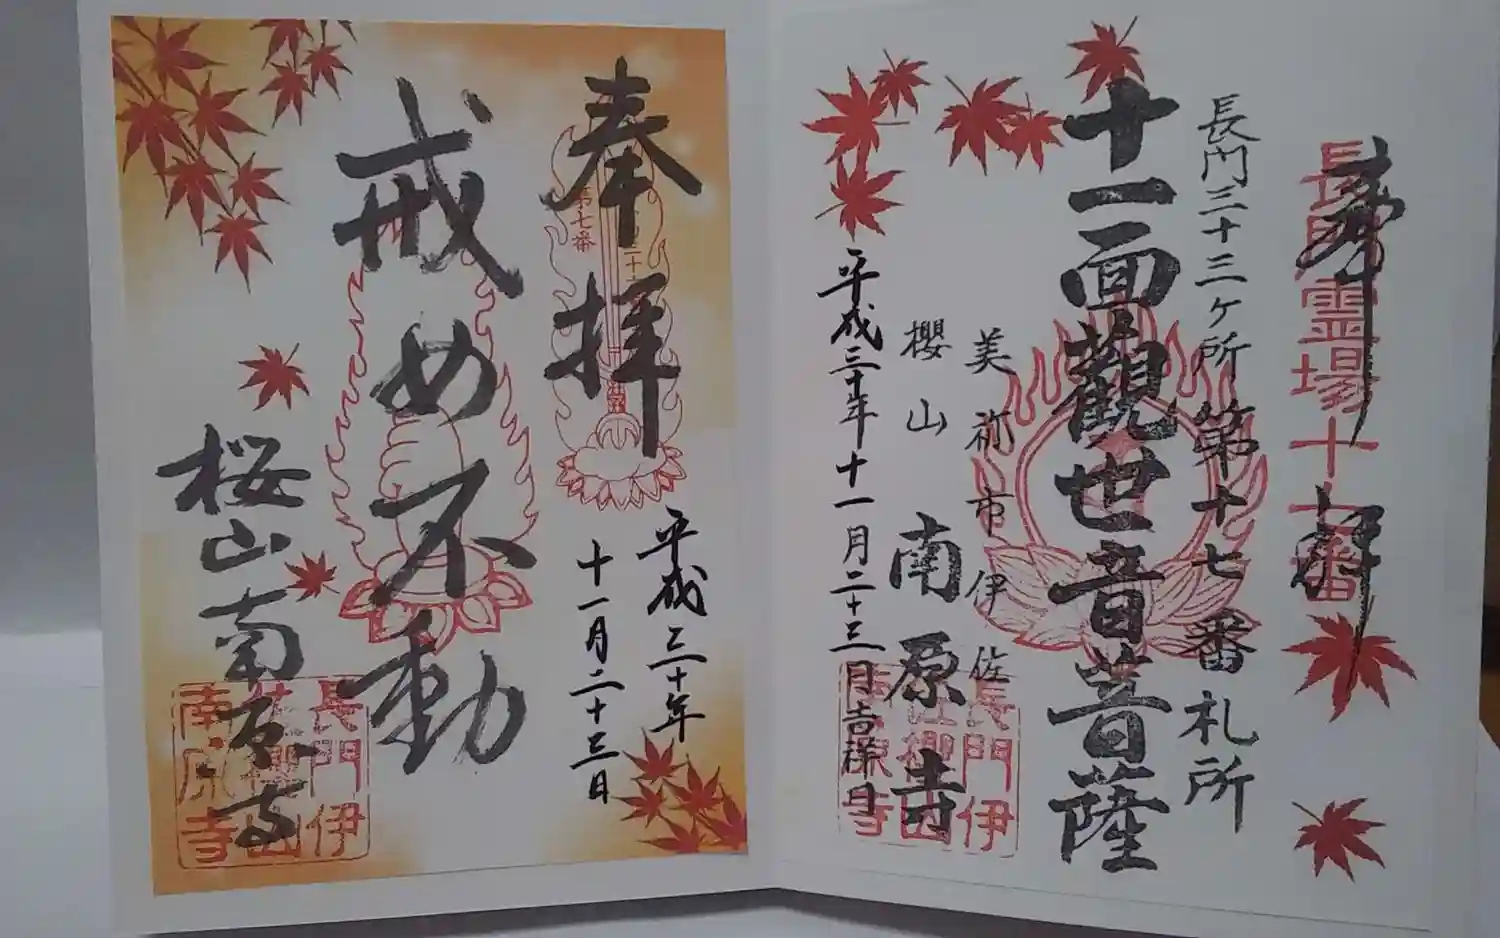 奉拝
長門霊場十七番
長門三十三ケ所第十七番札所
十一面觀世音菩薩
美祢市伊佐
櫻山
南原寺
平成三十年十一月二十三日吉祥日
長門伊
佐櫻山
南原寺
奉拝
第七番
平成三十年
十一月二十三日
戒め不動
桜山南原寺
長門伊
佐櫻山
南原寺